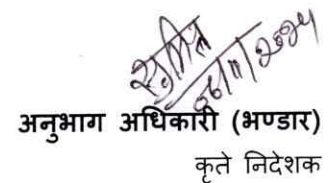 सुमित
अनुभाग अधिकारी (भण्डार)
कृते निदेशक